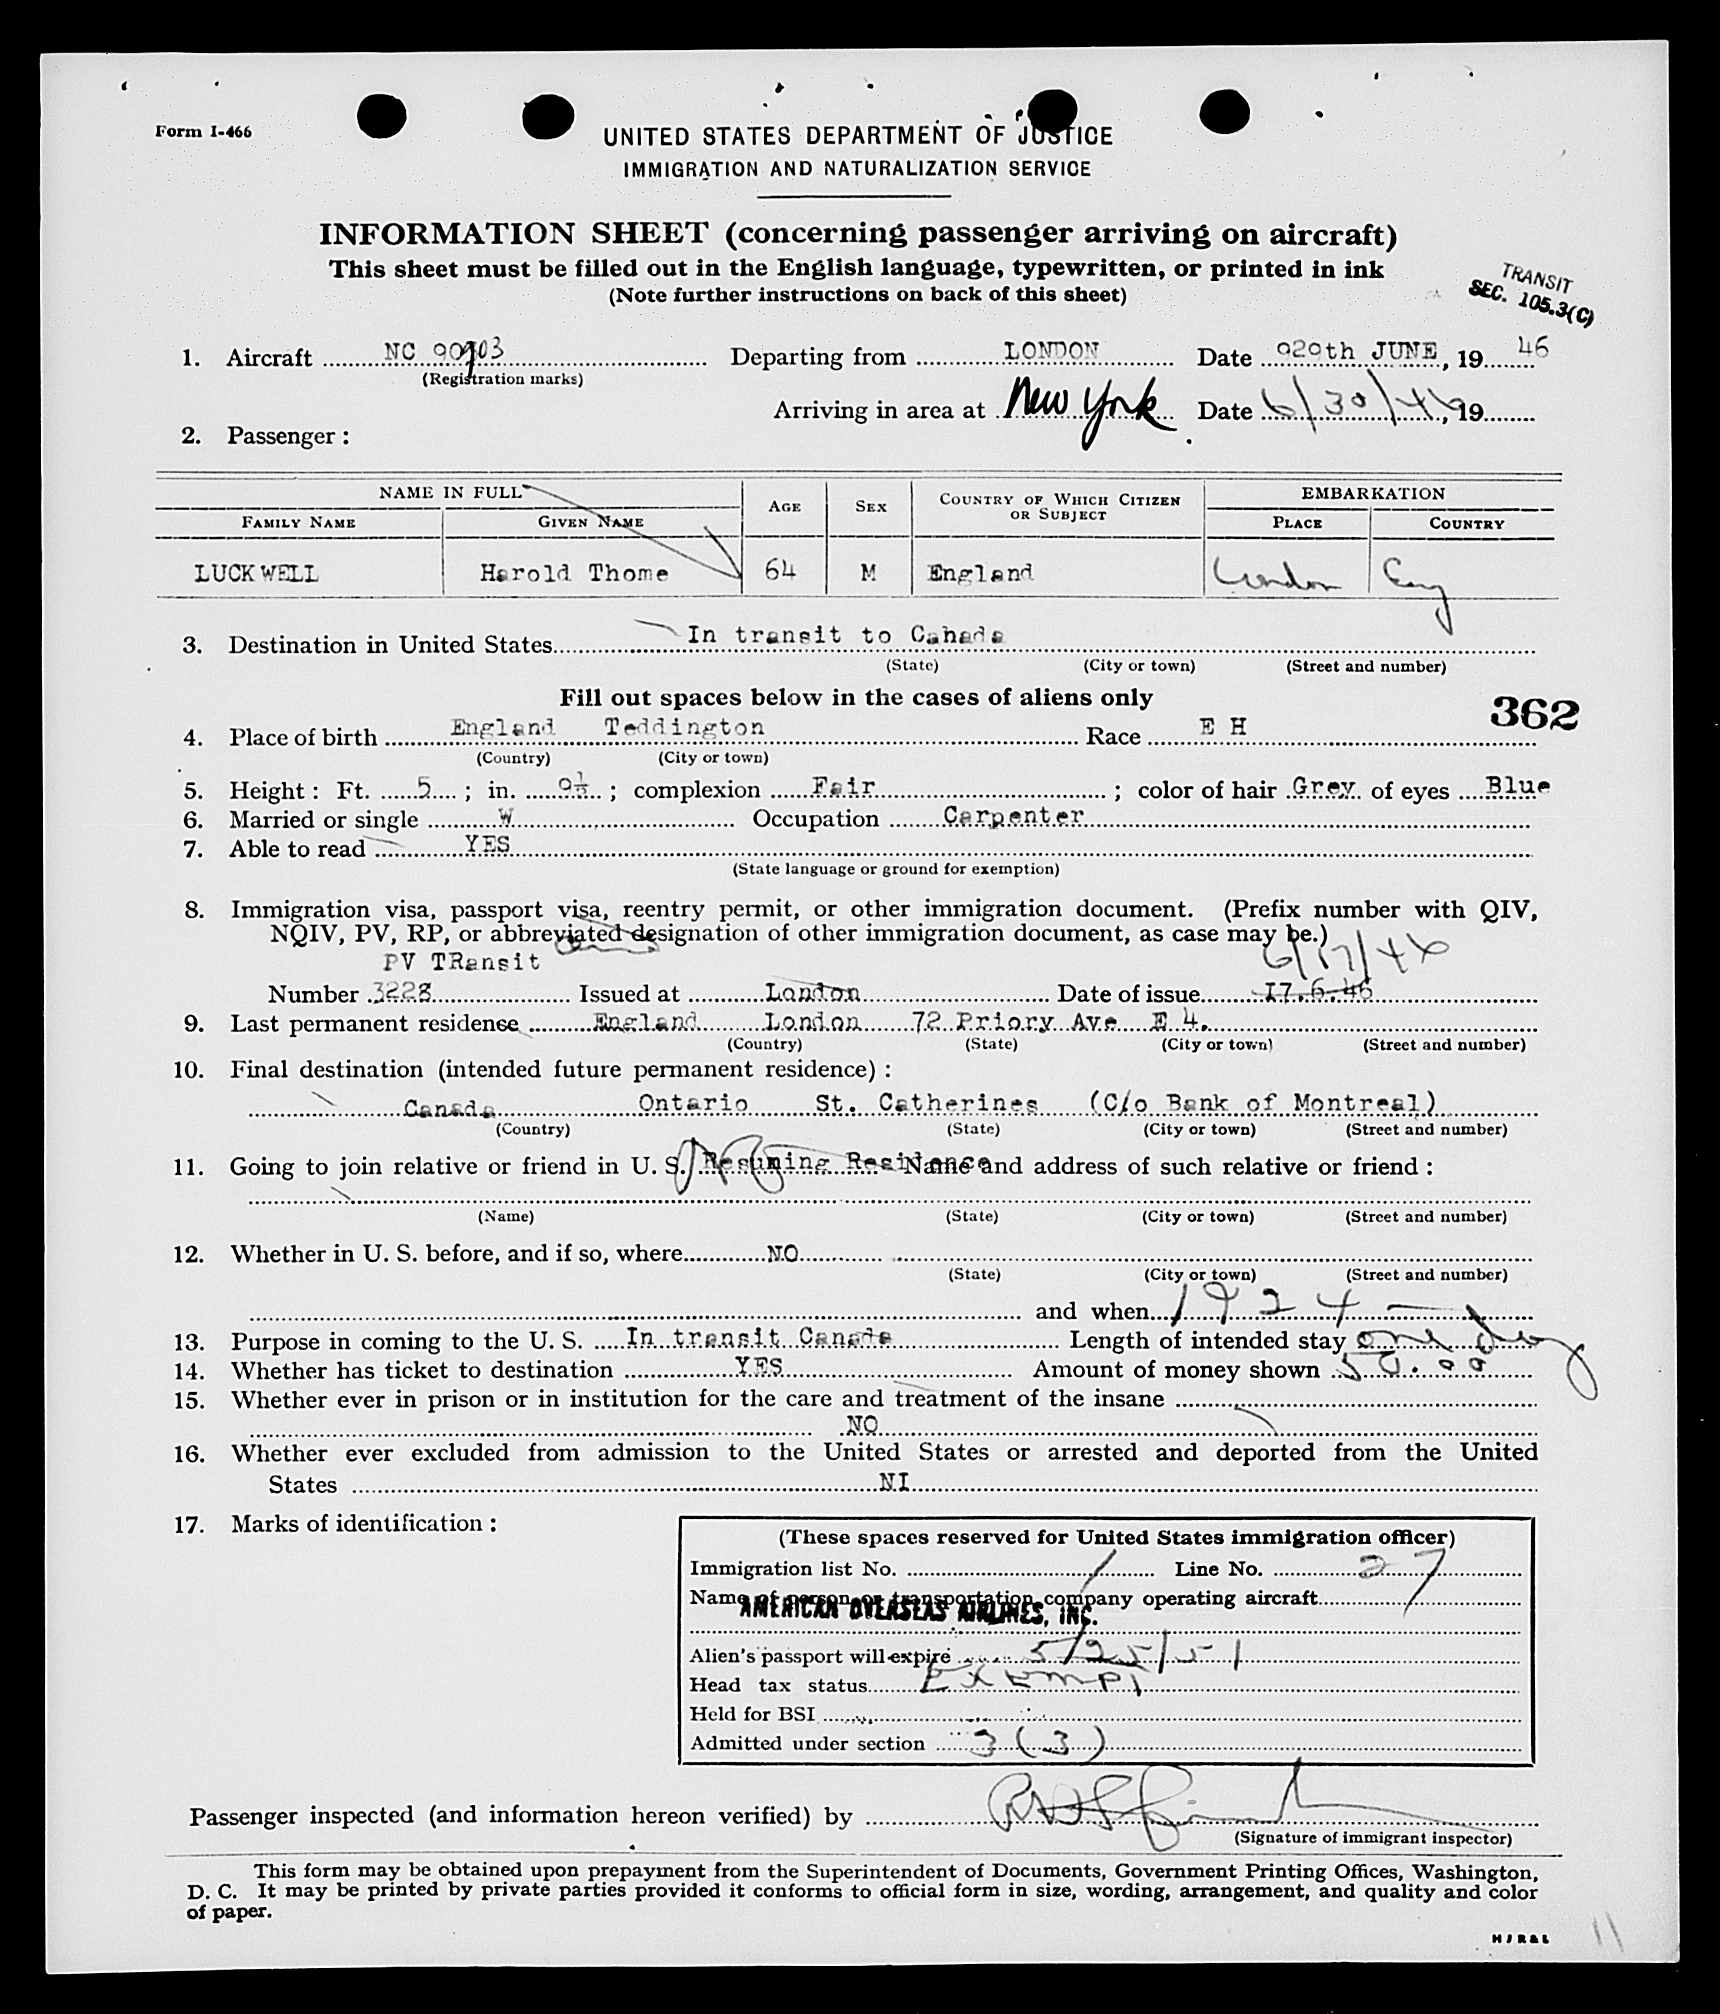 Form I-466
UNITED STATES DEPARTMENT OF JUSTICE
IMMIGRATION AND NATURALIZATION SERVICE
INFORMATION SHEET (concerning passenger arriving on aircraft)
This sheet must be filled out in the English language, typewritten, or printed in ink
(Note further instructions on back of this sheet)
TRANSIT
SEC. 105.3(C)
1. Aircraft NC 90903 Departing from LONDON Date 29th JUNE, 19 46
(Registration marks)
Arriving in area at New York Date 6/30/46, 19
2. Passenger:
NAME IN FULL AGE SEX COUNTRY OF WHICH CITIZEN OR SUBJECT EMBARKATION
FAMILY NAME GIVEN NAME PLACE COUNTRY
LUCKWELL Harold Thome 64 M England London Eng
3. Destination in United States In transit to Canada
(State) (City or town) (Street and number)
Fill out spaces below in the cases of aliens only
362
4. Place of birth England Teddington Race E H
(Country) (City or town)
5. Height: Ft. 5; in. 9½; complexion Fair; color of hair Grey of eyes Blue
6. Married or single W Occupation Carpenter
7. Able to read YES
(State language or ground for exemption)
8. Immigration visa, passport visa, reentry permit, or other immigration document. (Prefix number with QIV,
NQIV, PV, RP, or abbreviated designation of other immigration document, as case may be.)
PV TRansit 6/17/46
Number 3228 Issued at London Date of issue 17.6.46
9. Last permanent residence England London 72 Priory Ave E 4.
(Country) (State) (City or town) (Street and number)
10. Final destination (intended future permanent residence):
Canada Ontario St. Catherines (C/o Bank of Montreal)
(Country) (State) (City or town) (Street and number)
11. Going to join relative or friend in U. S. Resuming Residence Name and address of such relative or friend:
(Name) (State) (City or town) (Street and number)
12. Whether in U. S. before, and if so, where NO
(State) (City or town) (Street and number)
and when 1924
13. Purpose in coming to the U. S. In transit Canada Length of intended stay one day
14. Whether has ticket to destination YES Amount of money shown 50.00
15. Whether ever in prison or in institution for the care and treatment of the insane
NO
16. Whether ever excluded from admission to the United States or arrested and deported from the United
States NI
17. Marks of identification:
(These spaces reserved for United States immigration officer)
Immigration list No. 1 Line No. 27
Name of person or transportation company operating aircraft
AMERICAN OVERSEAS AIRLINES, INC.
Alien's passport will expire 5/25/51
Head tax status Exempt
Held for BSI
Admitted under section 3(3)
Passenger inspected (and information hereon verified) by
(Signature of immigrant inspector)
This form may be obtained upon prepayment from the Superintendent of Documents, Government Printing Offices, Washington,
D. C. It may be printed by private parties provided it conforms to official form in size, wording, arrangement, and quality and color
of paper.
11